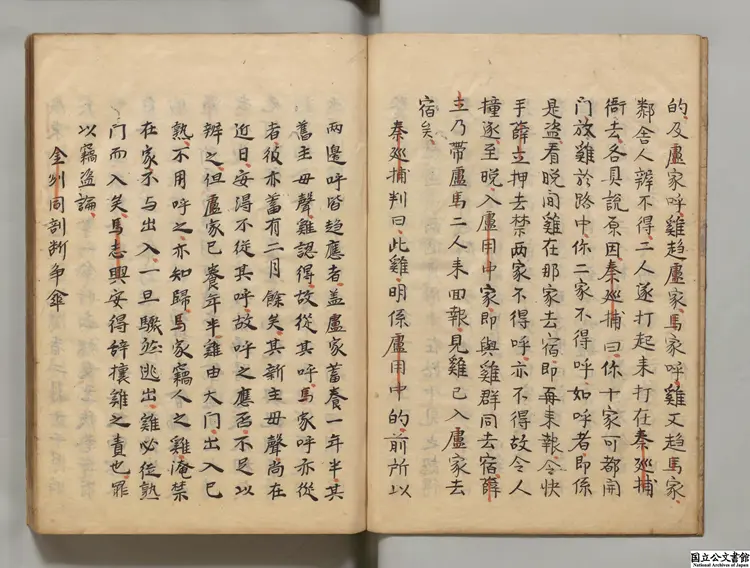 的、及盧家呼、雞趍盧家、馬家呼、雞又趍馬家、
鄰舍人辨不得、二人遂打起来、打在秦廵捕
衙去、各具說原因、秦廵捕曰、你十家可都開
門放雞於路中、你二家不得呼、如呼者即係
是盗、看晚間雞在那家去宿、即再来報、令快
手薛立押去、禁両家不得呼、亦不得故令人
撞逐、至晚、入盧用中家、即與雞群同去宿、薛
立乃帶盧馬二人来回報、見雞已入盧家去
宿矣、
秦廵捕判曰、此雞明係盧用中的、前所以
両邊呼皆趍應者、盖盧家蓄養一年半、其
舊主母聲、雞認得、故從其呼、馬家呼亦從
者、彼亦蓄有二月餘矣、其新主母聲、尚在
近日、安得不從其呼、故呼之應否、不足以
辨之、但盧家已養年半、雞由大門出入已
熟、不用呼之、亦知歸、馬家竊人之雞、淹禁
在家、不与出入、一旦驟然逃出、雞必從熟
門而入矣、馬志興安得辞攘雞之責也、罪
以竊盗論、
金州同剖断争傘
国立公文書館
National Archives of Japan